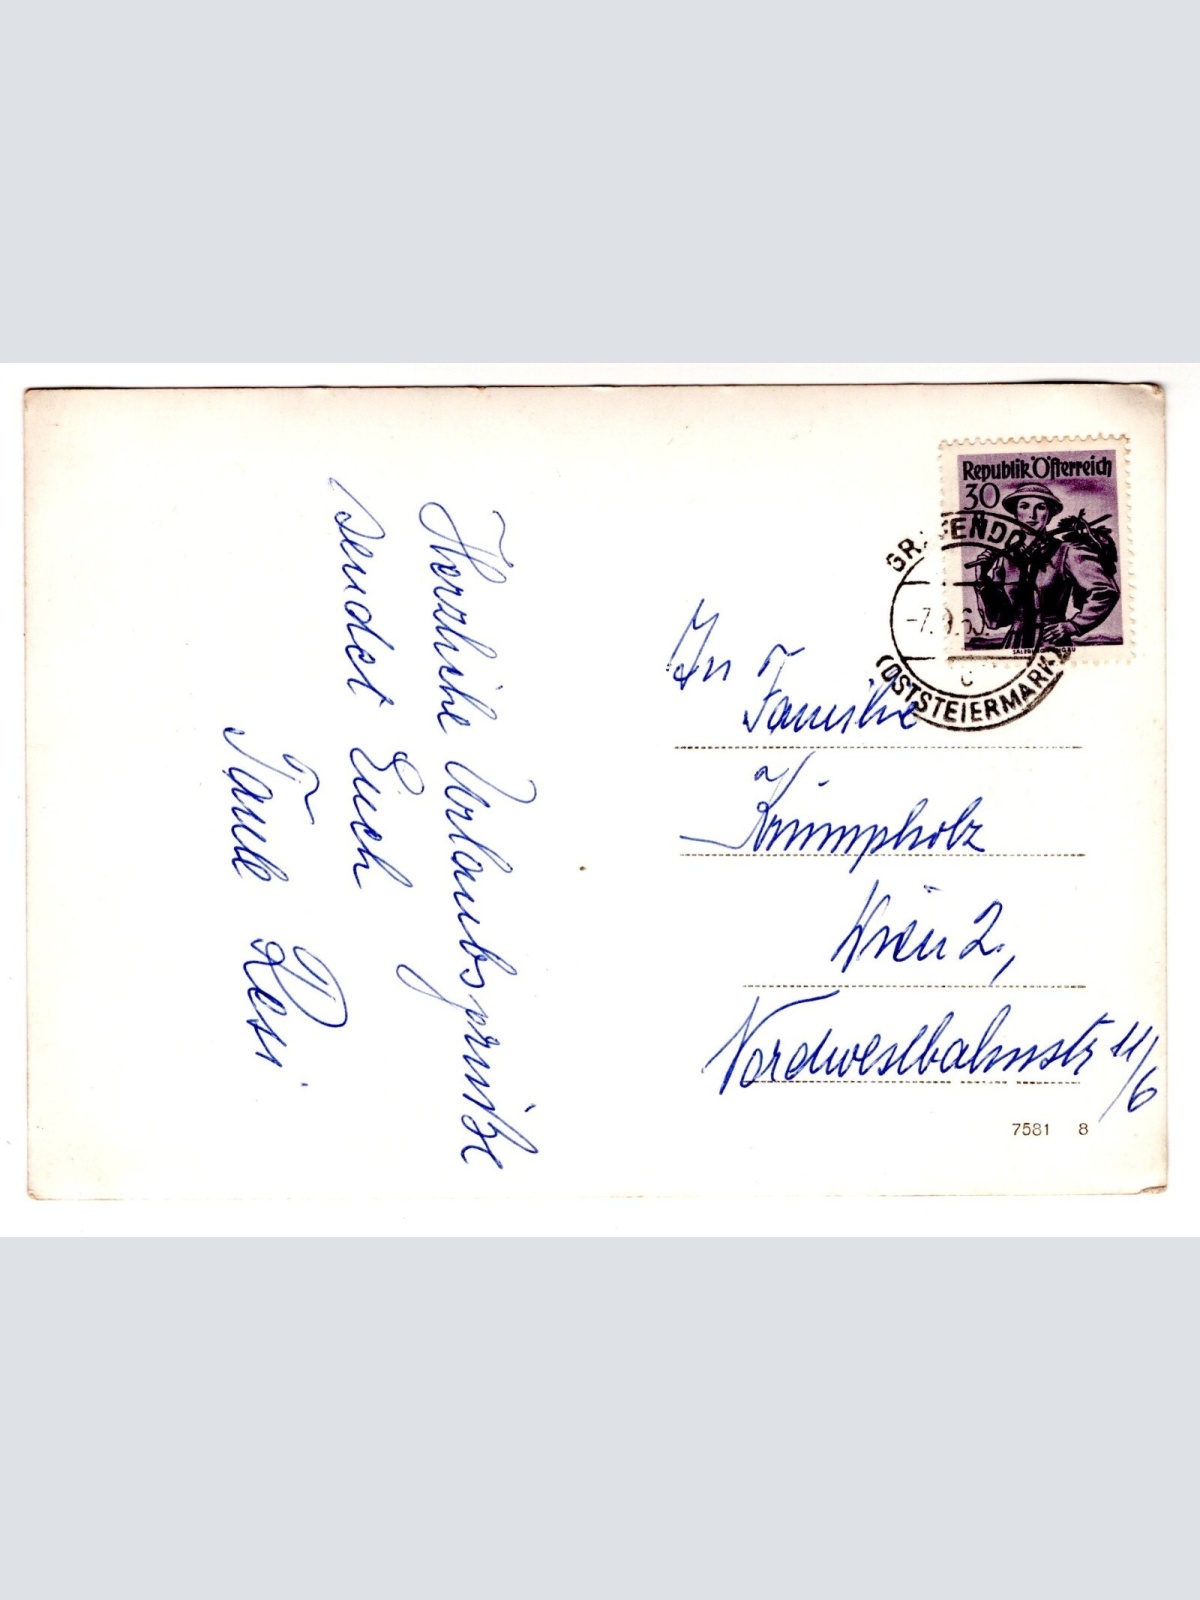 Herzliche Urlaubsgrüße
sendet Euch
Tante Resi
Republik Österreich
30
GRAFENDORF
-7.9.60.
c
(OSTSTEIERMARK)
An
Familie
Krumpholz
Wien 2,
Nordwestbahnstr 11/6
7581 8